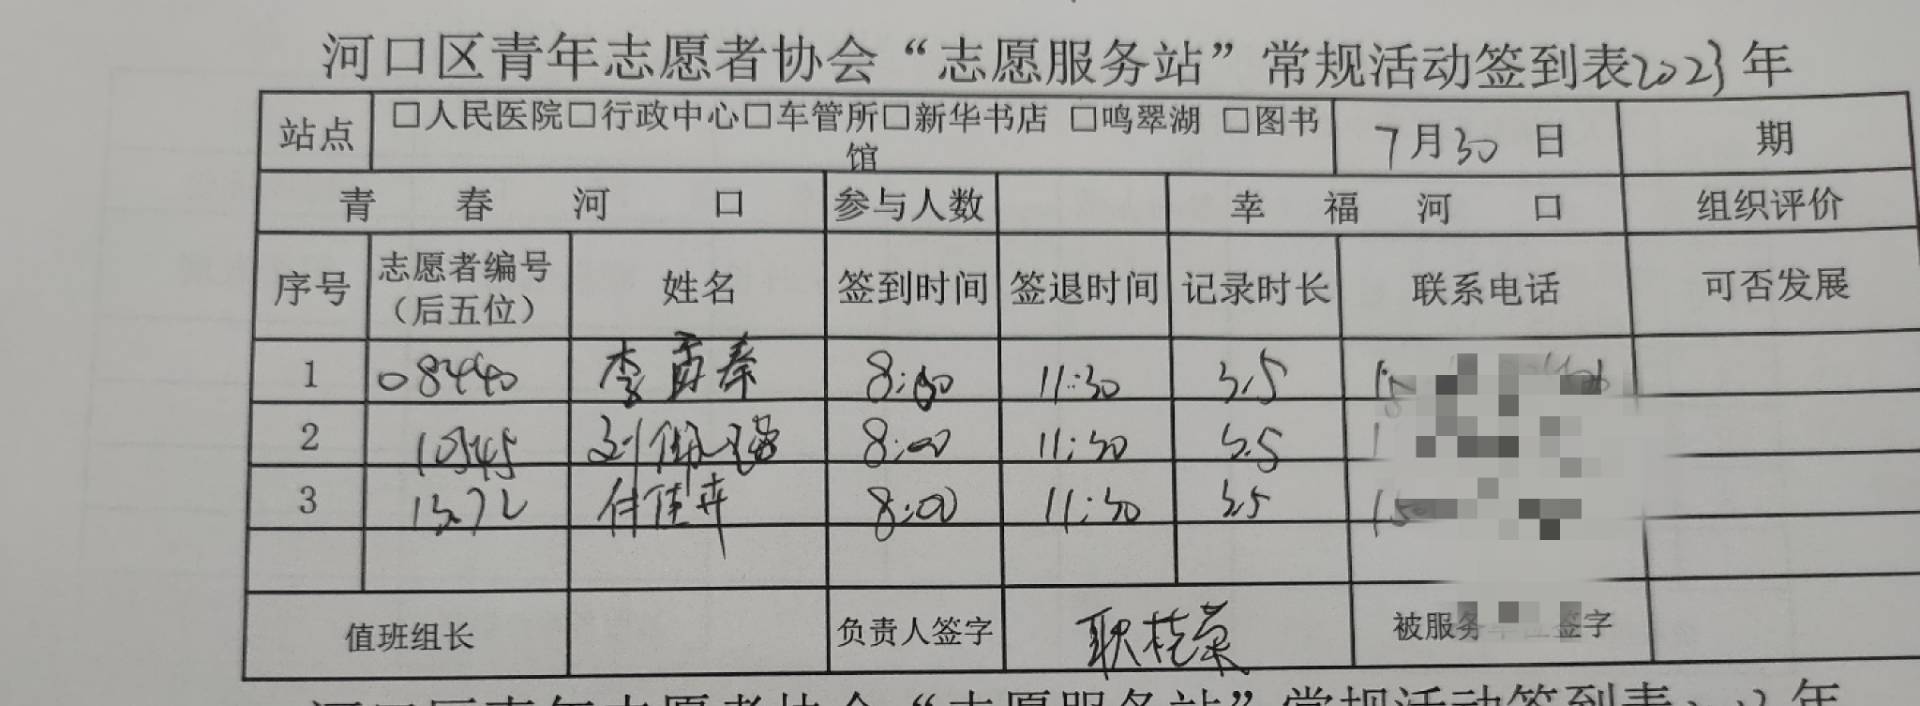 河口区青年志愿者协会“志愿服务站”常规活动签到表2023年
站点 □人民医院□行政中心□车管所□新华书店 □鸣翠湖 □图书馆 7月30日 期
青春河口 参与人数 幸福河口 组织评价
序号 志愿者编号（后五位） 姓名 签到时间 签退时间 记录时长 联系电话 可否发展
1 08440 李 秦 8:00 11:30 3.5
2 10545 刘 8:00 11:30 3.5
3 付佳卉 8:00 11:30 3.5
值班组长 负责人签字 耿桂荣 被服务 签字
河口区青年志愿者协会“志愿服务站”常规活动签到表 年